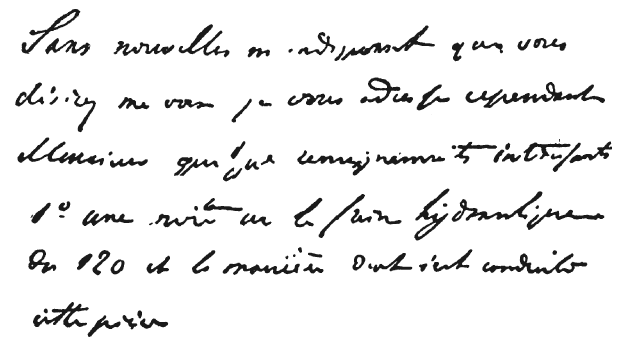 Sans nouvelles m indiquant que vous
désirez me voir je vous adresse cependant
Monsieur quelque renseignements intéressants
1° une note sur le frein hydraulique
du 120 et la manière dont s'est conduite
cette pièce